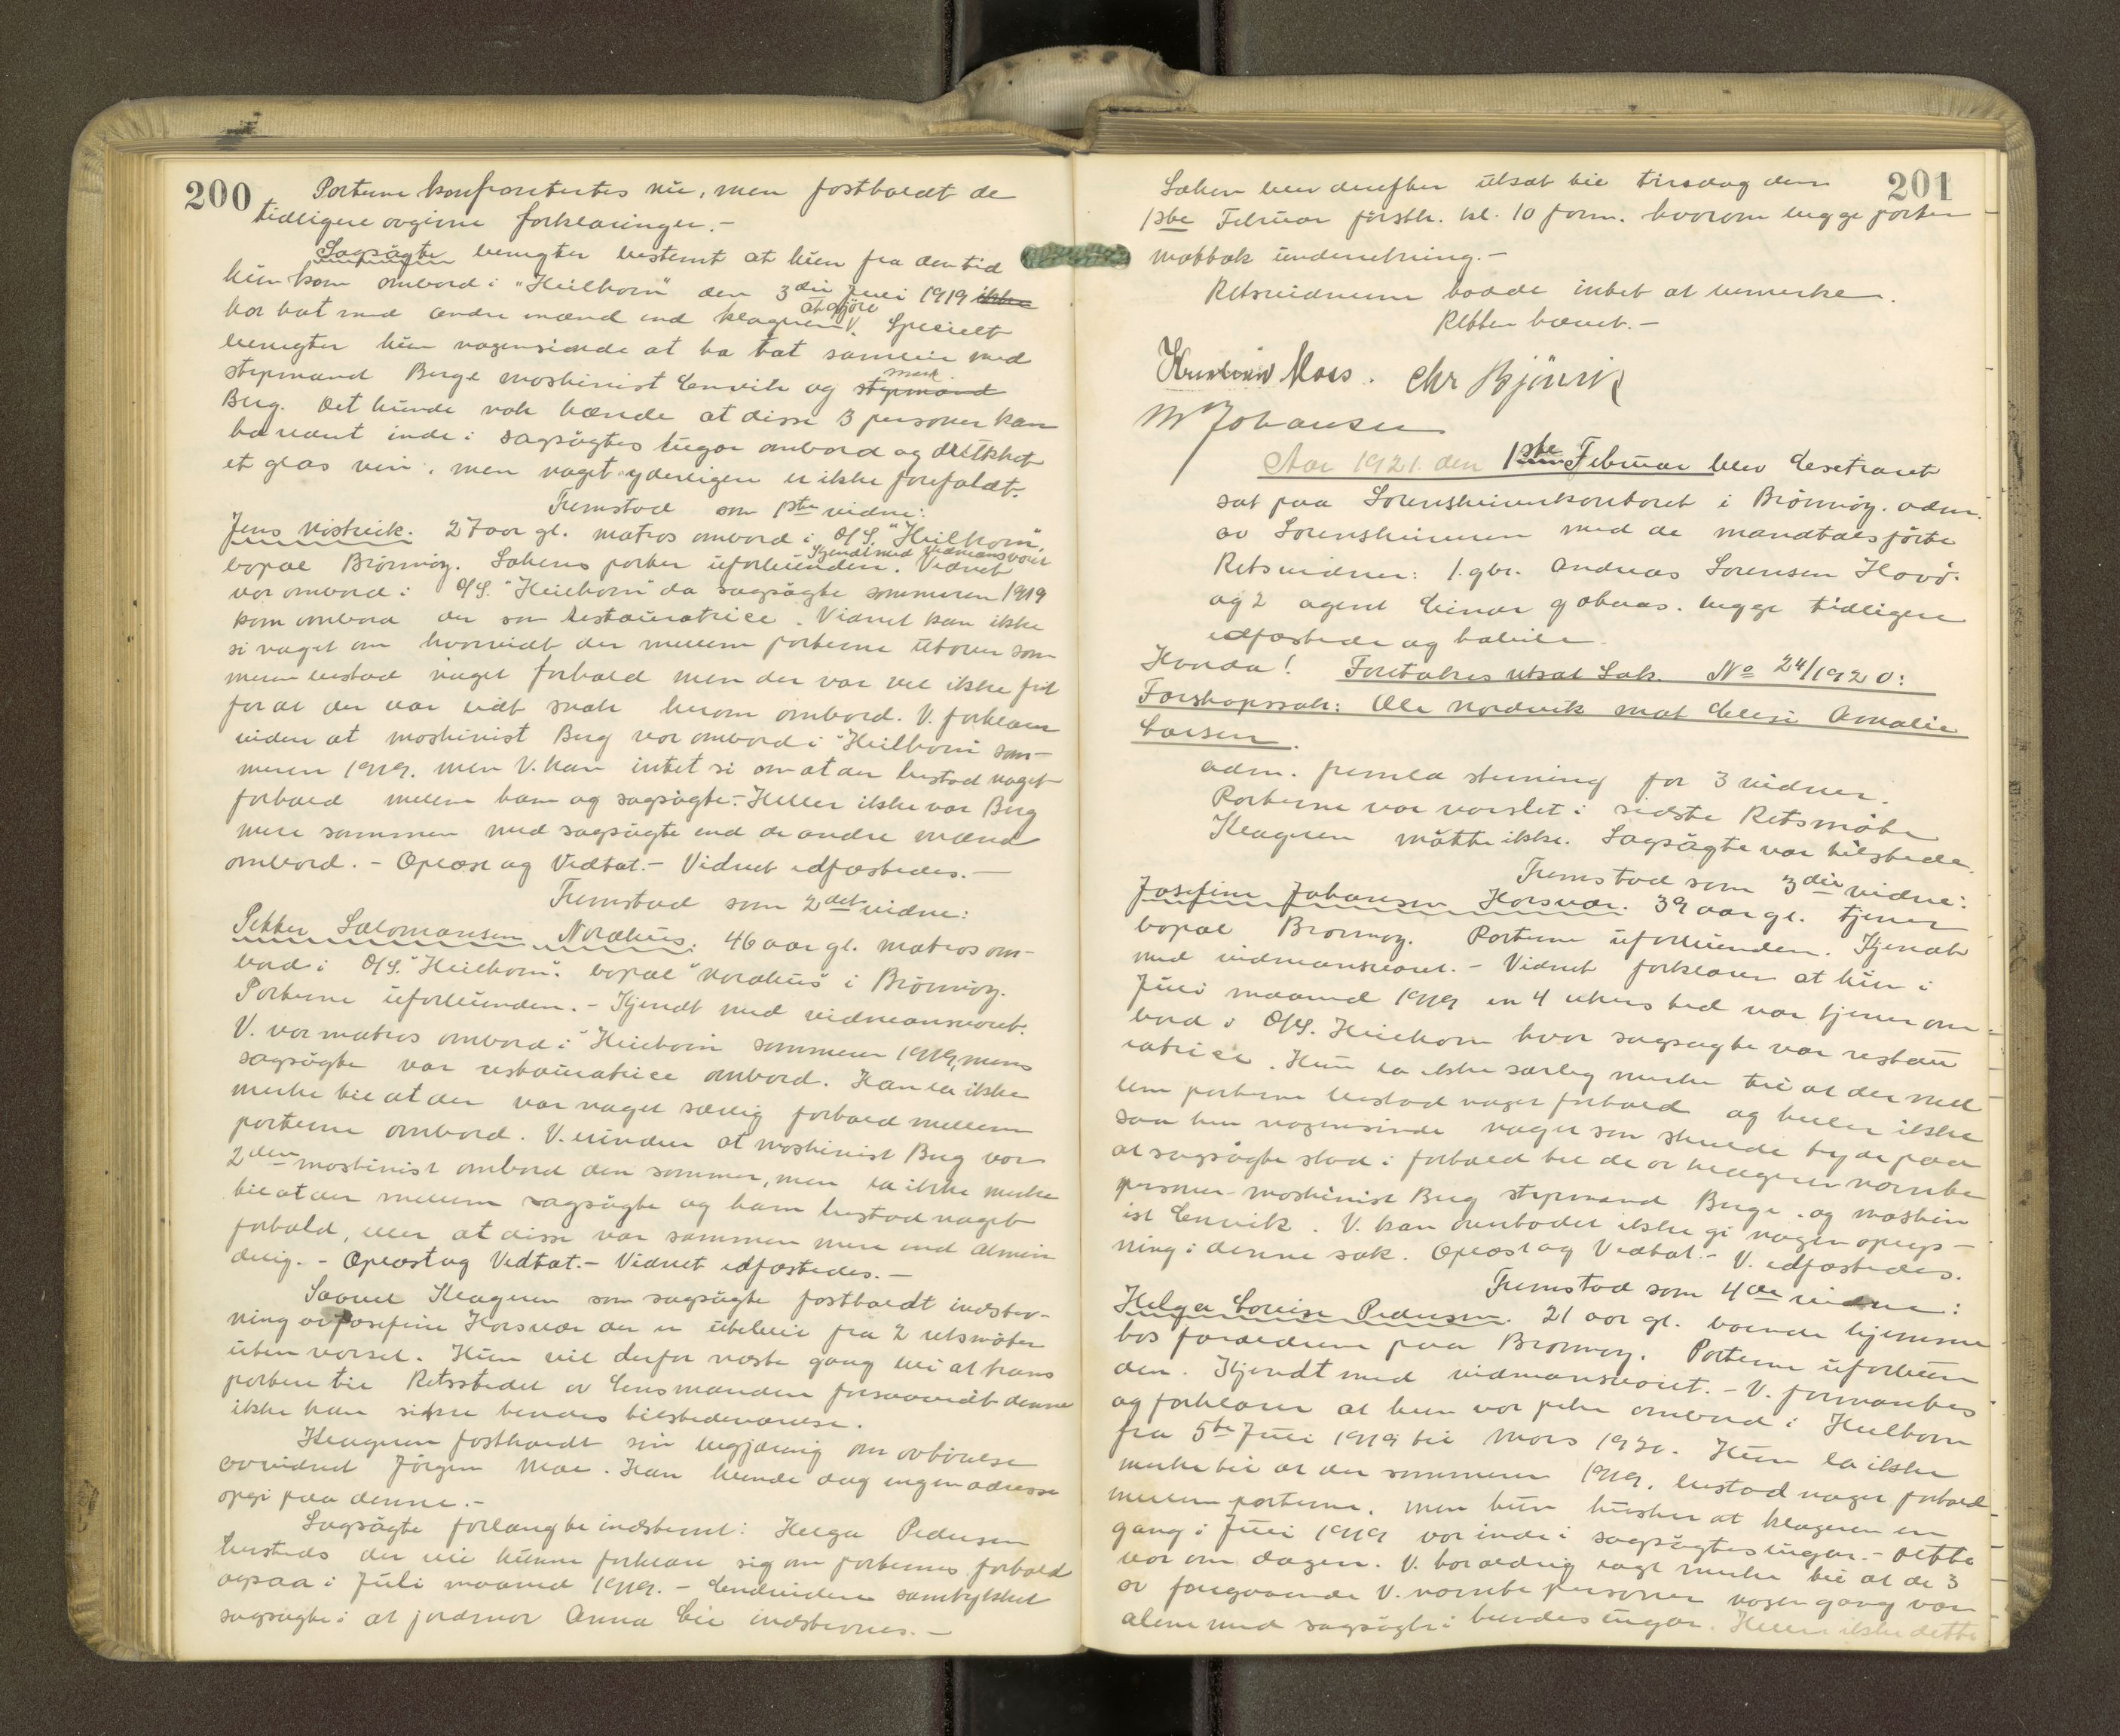 200
Parterne konfrontertes nu, men fastholdt de
tidligere avgivne forklaringer.-
Sagsøgte benegter bestemt at hun fra den tid
hun kom ombord i "Heilhorn" den 3die Juni 1919 ikke
har hat med andre mænd end klageren at gjøre V. Specielt
benegter hun nogensinde at ha hat samleie med
styrmand Berge maskinist Envik og styrmand mask.
Berg. Det kunde nok hænde at disse 3 personer kan
ha været inde i sagsøgtes lugar ombord og drukket
et glas vin, men noget yderligere er ikke forefaldt.
Fremstod som 1ste vidne:
Jens Nistvik. 27 aar gl. matros ombord i D/S. "Heilhorn",
bopæl Brønnøy. Sakens parter uforbunden. Kjendt med vidneansvaret Vidnet
var ombord i D/S. "Heilhorn" da sagsøgte sommeren 1919
kom ombord der som restauratrice. Vidnet kan ikke
si noget om hvorvidt der mellem parterne utover som-
meren bestod noget forhold men der var vel ikke frit
for at der var litt snak herom ombord. V. forklarer
viden at maskinist Berg var ombord i "Heilhorn" som-
meren 1919. men V. kan intet si om at der bestod noget
forhold mellem ham og sagsøgte. Heller ikke var Berg
mere sammen med sagsøgte end de andre mænd
ombord. - Oplæst og Vedtat.- Vidnet edfæstedes.-
Fremstod som 2det vidne:
Petter Salomonsen Nordhus. 46 aar gl. matros om-
bord i D/S. "Heilhorn". bopæl "Nordhus" i Brønnøy.
Parterne uforbunden.- Kjendt med vidneansvaret.
V. var matros ombord i "Heilhorn sommeren 1919, mens
sagsøgte var restauratrice ombord. Han la ikke
merke til at der var noget særlig forhold mellem
parterne ombord. V. minder at maskinist Berg var
2den maskinist ombord den sommer, men la ikke merke
til at der mellem sagsøgte og ham bestod noget
forhold, eller at disse var sammen mere end almin
delig.- Oplæst og Vedtat.- Vidnet edfæstedes.-
Saavel Klageren som sagsøgte fastholdt indstev-
ning av Josefine Horsvær der er utebleven fra 2 retsmøter
uten varsel. Hun vil derfor næste gang bli at trans
portere til Retsstedet av Lensmanden forsaavidt denne
ikke kan sikre hendes tilstedeværelse.
Klageren fastholdt sin begjæring om avhørelse
av vidnet Jørgen Moe. Han kunde dog ingen adresse
opgi paa denne.-
Sagsøgte forlangte indstevnt: Helga Pedersen
hersteds der vil kunne forklare sig om parternes forhold
ogsaa i Juli maaned 1919.- Endvidere samtykket
sagsøgte i at jordmor Anna Lie indstevnes.-
201
Saken blev derefter utsat til tirsdag den
1ste Februar førstk. kl. 10 form. hvorom begge parter
mottok underretning.-
Retsvidnerne hadde intet at bemerke.
Retten hævet.-
Kristian Moes. Chr Bjönvik
M Johansen
Aar 1921. den 1ste Februar blev Extraret
sat paa Sorenskriverkontoret i Brønnøy. adm.
av Sorenskriveren med de mandtalsførte
Retsvidner: 1. gbr. Andreas Sorensen Havø.
og 2 agent Einar Gobaas. begge tidligere
edfæstede og habile.
Hvorda! Foretokes utsat Sak. No 24/1920:
Farskapssak: Ole Nordvik mot Elise Amalie
Larsen.
adm. fremla stevning for 3 vidner.
Parterne var varslet i sidste Retsmøte
Klageren møtte ikke. Sagsøgte var tilstede.
Fremstod som 3die vidne:
Josefine Johansen Horsvær. 39 aar gl. tjener
bopæl Brønnøy. Parterne uforbunden. Kjendt
med vidneansvaret.- Vidnet forklarer at hun i
Juli maaned 1919 en 4 ukers tid var tjener om-
bord i D/S. Heilhorn hvor sagsøgte var restau
ratrice. Hun la ikke særlig merke til at der mel
lem parterne bestod noget forhold og heller ikke
saa hun nogensinde noget som skulde tyde paa
at sagsøgte stod i forhold til de av klageren nævnte
personer- maskinist Berg styrmand Berge. og maskin
ist Envik. V. kan overhodet ikke gi nogen oplys-
ning i denne sak. Oplæst og Vedtat.- V. edfæstedes.
Fremstod som 4de vidne:
Helga Lovise Pedersen. 21 aar gl. boende hjemme
hos forældrene paa Brønnøy. Parterne uforbun
den. Kjendt med vidneansvaret.- V. formantes
og forklarer at hun var pike ombord i Heilhorn
fra 5te Juli 1919 til Mars 1920. Hun la ikke
merke til at der sommeren 1919, bestod noget forhold
mellem parterne, men hun husker at klageren en
gang i Juli 1919 var inde i sagsøgtes lugar.- Dette
var om dagen. V. har aldrig lagt merke til at de 3
av foregaaende V. nævnte personer nogen gang var
alene med sagsøgte i hendes lugar. Heller ikke dette